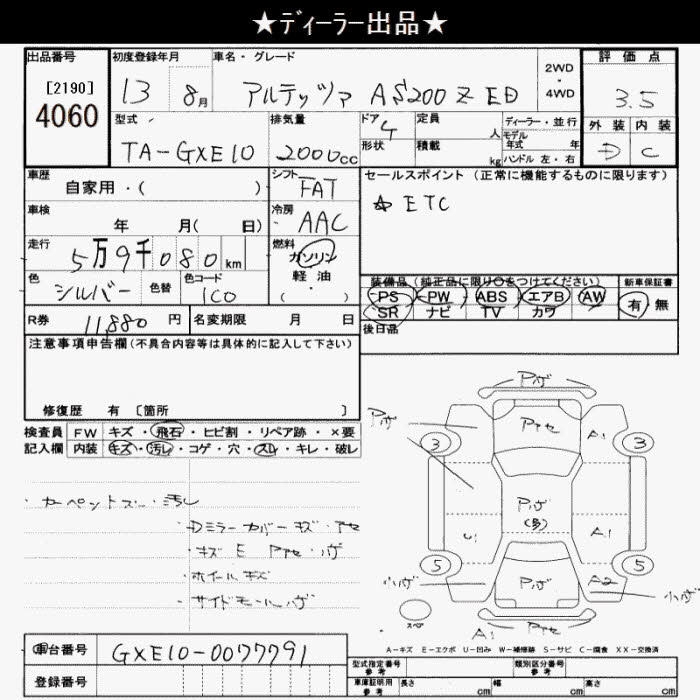 ★ディーラー出品★
出品番号 初度登録年月 車名・グレード 2WD・4WD 評価点
[2190]
4060
13 8月 アルテッツァ AS200 Z ED 3.5
型式 排気量 ドア 4 定員 人 ディーラー・並行 外装 内装
TA-GXE10 2000cc 形状 積載 kg モデル年式 年 D C
ハンドル 左・右
車歴 シフト セールスポイント(正常に機能するものに限ります)
自家用・( ) FAT ☆ETC
車検 冷房
年 月( 日) AAC
走行 燃料
5万9千080km ガソリン
軽・油
( ・ )
色 色替 色コード 装備品(純正品に限り○をつけてください) 新車保証書
シルバー 1C0 PS PW ABS エアB AW 有・無
SR ナビ TV カワ
R券 11,880円 名変期限 月 日 後日品
注意事項申告欄(不具合内容等は具体的に記入して下さい)
修復歴 有 〔箇所 〕
検査員 FW キズ・飛石・ヒビ割・リペア跡・×要
記入欄 内装 キズ・汚レ・コゲ・穴・スレ・キレ・破レ
・カーペットスレ・汚レ
・Dミラーカバーキズ・アセ
・キズ E Pアセ・ハゲ
・ホイールキズ
・サイドモールハゲ
Pハゲ
Pハゲ Pアセ A1
3 3
Pハゲ
U1 A1
5 5
小ハゲ Pハゲ A2 小ハゲ
スペア A1 Pアセ
A-キズ E-エクボ U-凹み W-補修跡 S-サビ C-腐食 XX-交換済
車台番号 GXE10-0077791
登録番号
型式指定番号 参考 類別区分番号 参考
車庫証明用 参考 長さ cm 幅 cm 高さ cm